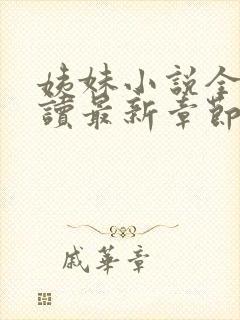 姊妹小說全
讀最新章節
戚華章